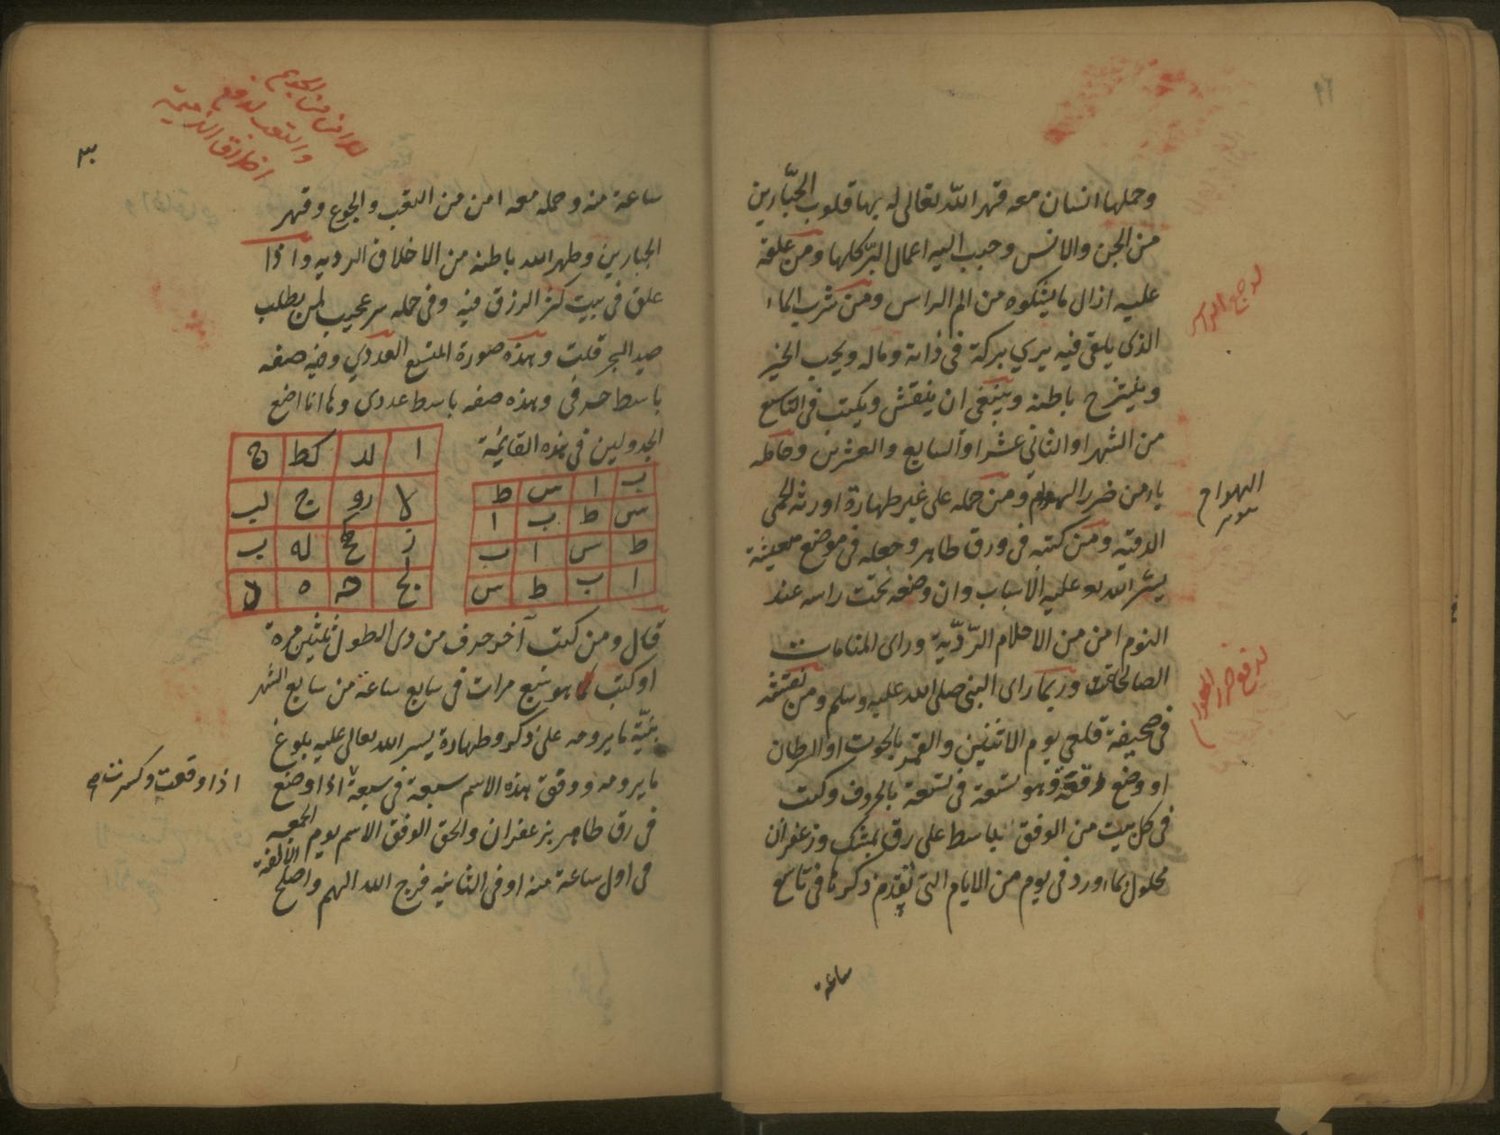 وحملها انسان معه قهر الله تعالى له بها قلوب الجبّارين
من الجن والانس وحبب اليه اعمال البرّ كلها ومن علقه
عليه ازال ما يشكوه من الم الراس ومن شرب الماء
الذى يلقى فيه يرى بركة فى ذاته وماله ويحب الخير
وينشرح باطنه وينبغى ان ينقش ويكتب فى التاسع
من الشهر او الثانى عشر او السابع والعشرين وحامله
يامن ضرر الهوام ومن حمله على غير طهارة اورثه الحمى
الدقيه ومن كتبه فى ورق طاهر وجعله فى موضع معيشة
يسّر الله عليه الاسباب وان وضعه تحت راسه عند
النوم امن من الاحلام الرّديّة وراى المنامات
الصالحات وربما راى النبى صلى الله عليه وسلم ومن نقشه
فى صحيفة قلعى يوم الاثنين والقمر بالحوت او السرطان
او وضع وفقه وهو تسعة فى تسعة بالحروف وكتب
فى كل بيت من الوفق باسط على رق بمسك وزعفران
محلول بماء ورد فى يوم من الايام التى تقدم ذكرها فى تاسع
ساعة
لوجع الراس
الهوام
لدفع ضرر الهوام
٣٠
للامان من الجوع
والتعب لدفع
اخلاق الذميمة
ساعة منه وحمله معه امن من التعب والجوع وقهر
الجبارين وطهر الله باطنه من الاخلاق الرديه واذا
علق فى بيت كثر الرزق فيه وفى حمله سر عجيب لمن يطلب
صيد البحر قلت وهذه صورة المتسع العددي وفيه صفه
باسط حرفى وهذه صفه باسط عددى وها انا اضع
الجدولين فى هذه القايمة
ب ا س ط
س ط ب ا
ط س ا ب
ا ب ط س
ا لد كط ح
لا و ج لب
ز كح له ب
لج ه ل
قال ومن كتب آخر حرف من ذى الطول ثلثين مرة
او كتب كما هو سبع مرات فى سابع ساعة من سابع الشهر
بنيّة ما يرومه على ذكر وطهارة يسر الله تعالى عليه بلوغ
ما يرومه ووفق هذه الاسم سبعة فى سبعة اذا وضع
فى رق طاهر بزعفران والحق الوفق الاسم يوم الجمعه
فى اول ساعة منه او فى الثانيه فرج الله الهم واصلح
اذا وقعت وكسرت